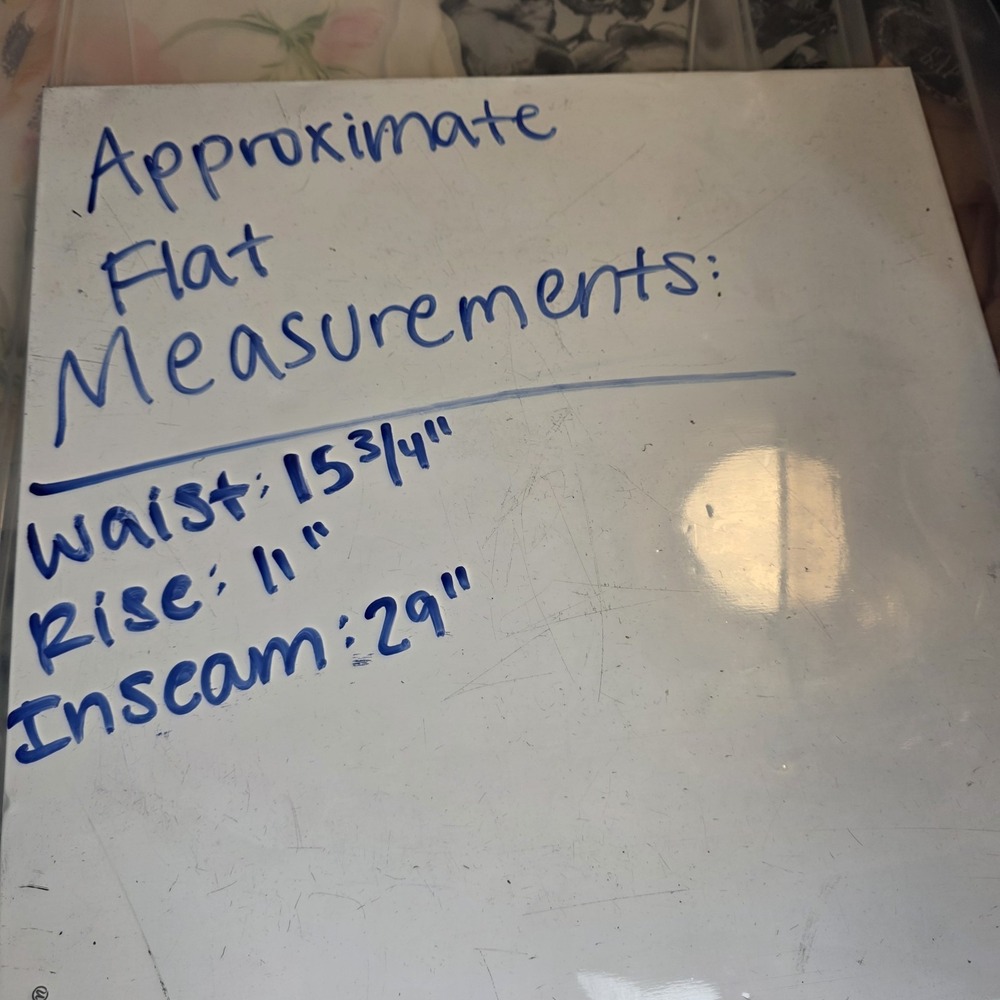 Approximate
Flat
Measurements:
Waist: 15 3/4"
Rise: 11"
Inseam: 29"